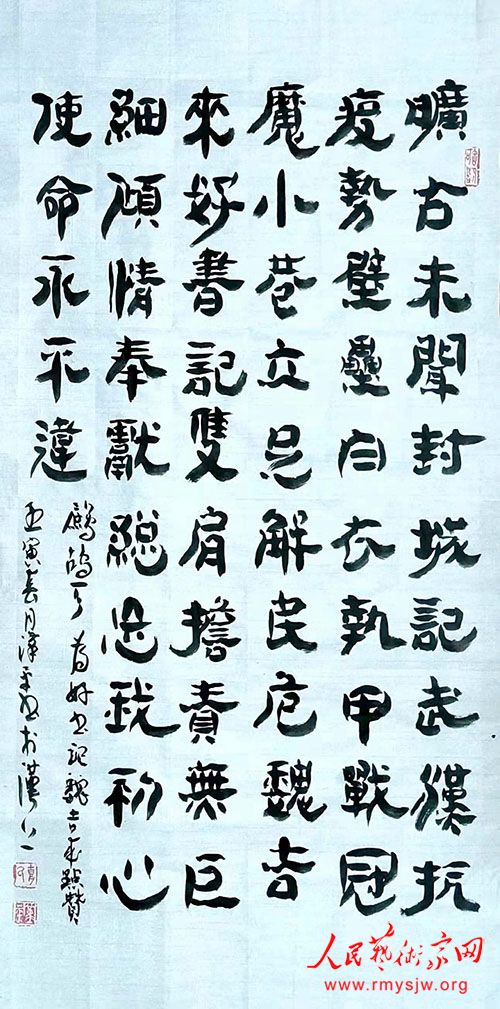 曠古未聞封城記武漢抗
疫勢壁壘白衣執甲戰冠
魔小巷立足解民危魏吉
來好書記雙肩擔責無巨
細傾情奉獻總忘我初心
使命永不違
鷓鴣天 為好書記魏吉來點贊
壬寅春月於漢上
人民藝術家网
www.rmysjw.org